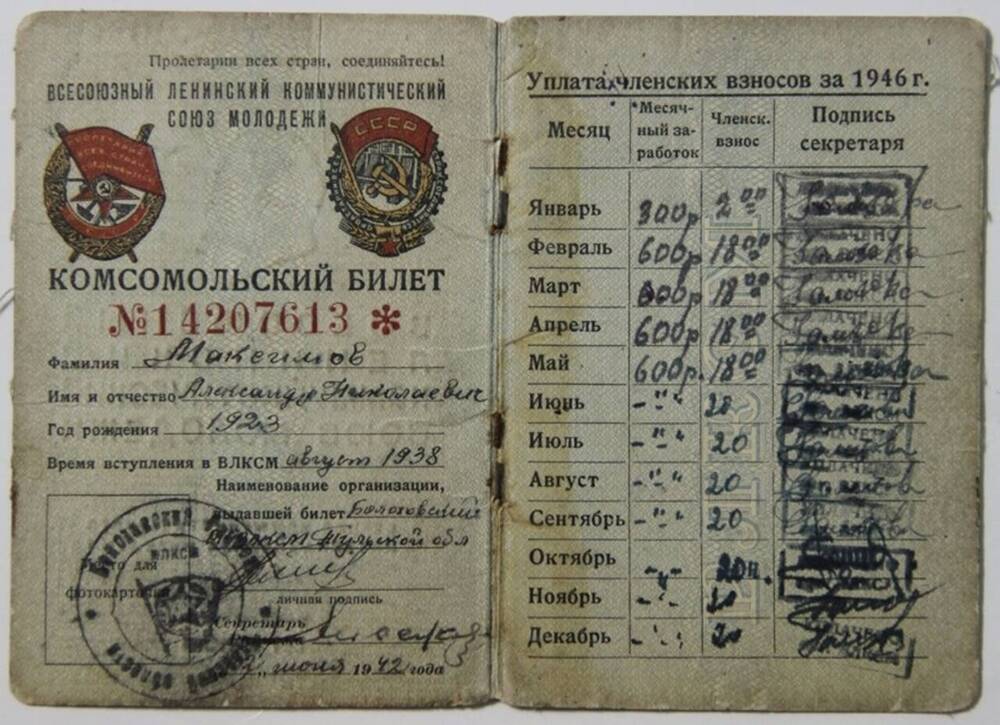 Пролетарии всех стран, соединяйтесь!
ВСЕСОЮЗНЫЙ ЛЕНИНСКИЙ КОММУНИСТИЧЕСКИЙ
СОЮЗ МОЛОДЕЖИ
СССР
КОМСОМОЛЬСКИЙ БИЛЕТ
№14207613 *
Фамилия Максимов
Имя и отчество Александр Николаевич
Год рождения 1923
Время вступления в ВЛКСМ август 1938
Наименование организации,
выдавшей билет Болоховский
Тульской обл
ВЛКСМ
Место для
фотокарточки
личная подпись
Секретарь
июня 1942 года
Уплата членских взносов за 1946 г.
Месяц Месячный заработок Членск. взнос Подпись секретаря
Январь 300р 2 00
Февраль 600р 18 00
Март 600р 18 00
Апрель 600р 18 00
Май 600р. 18 00
Июнь -"- 20
Июль -"- 20
Август -"- 20
Сентябрь -"- 20
Октябрь -"- 20
Ноябрь -"- 20
Декабрь -"- 20